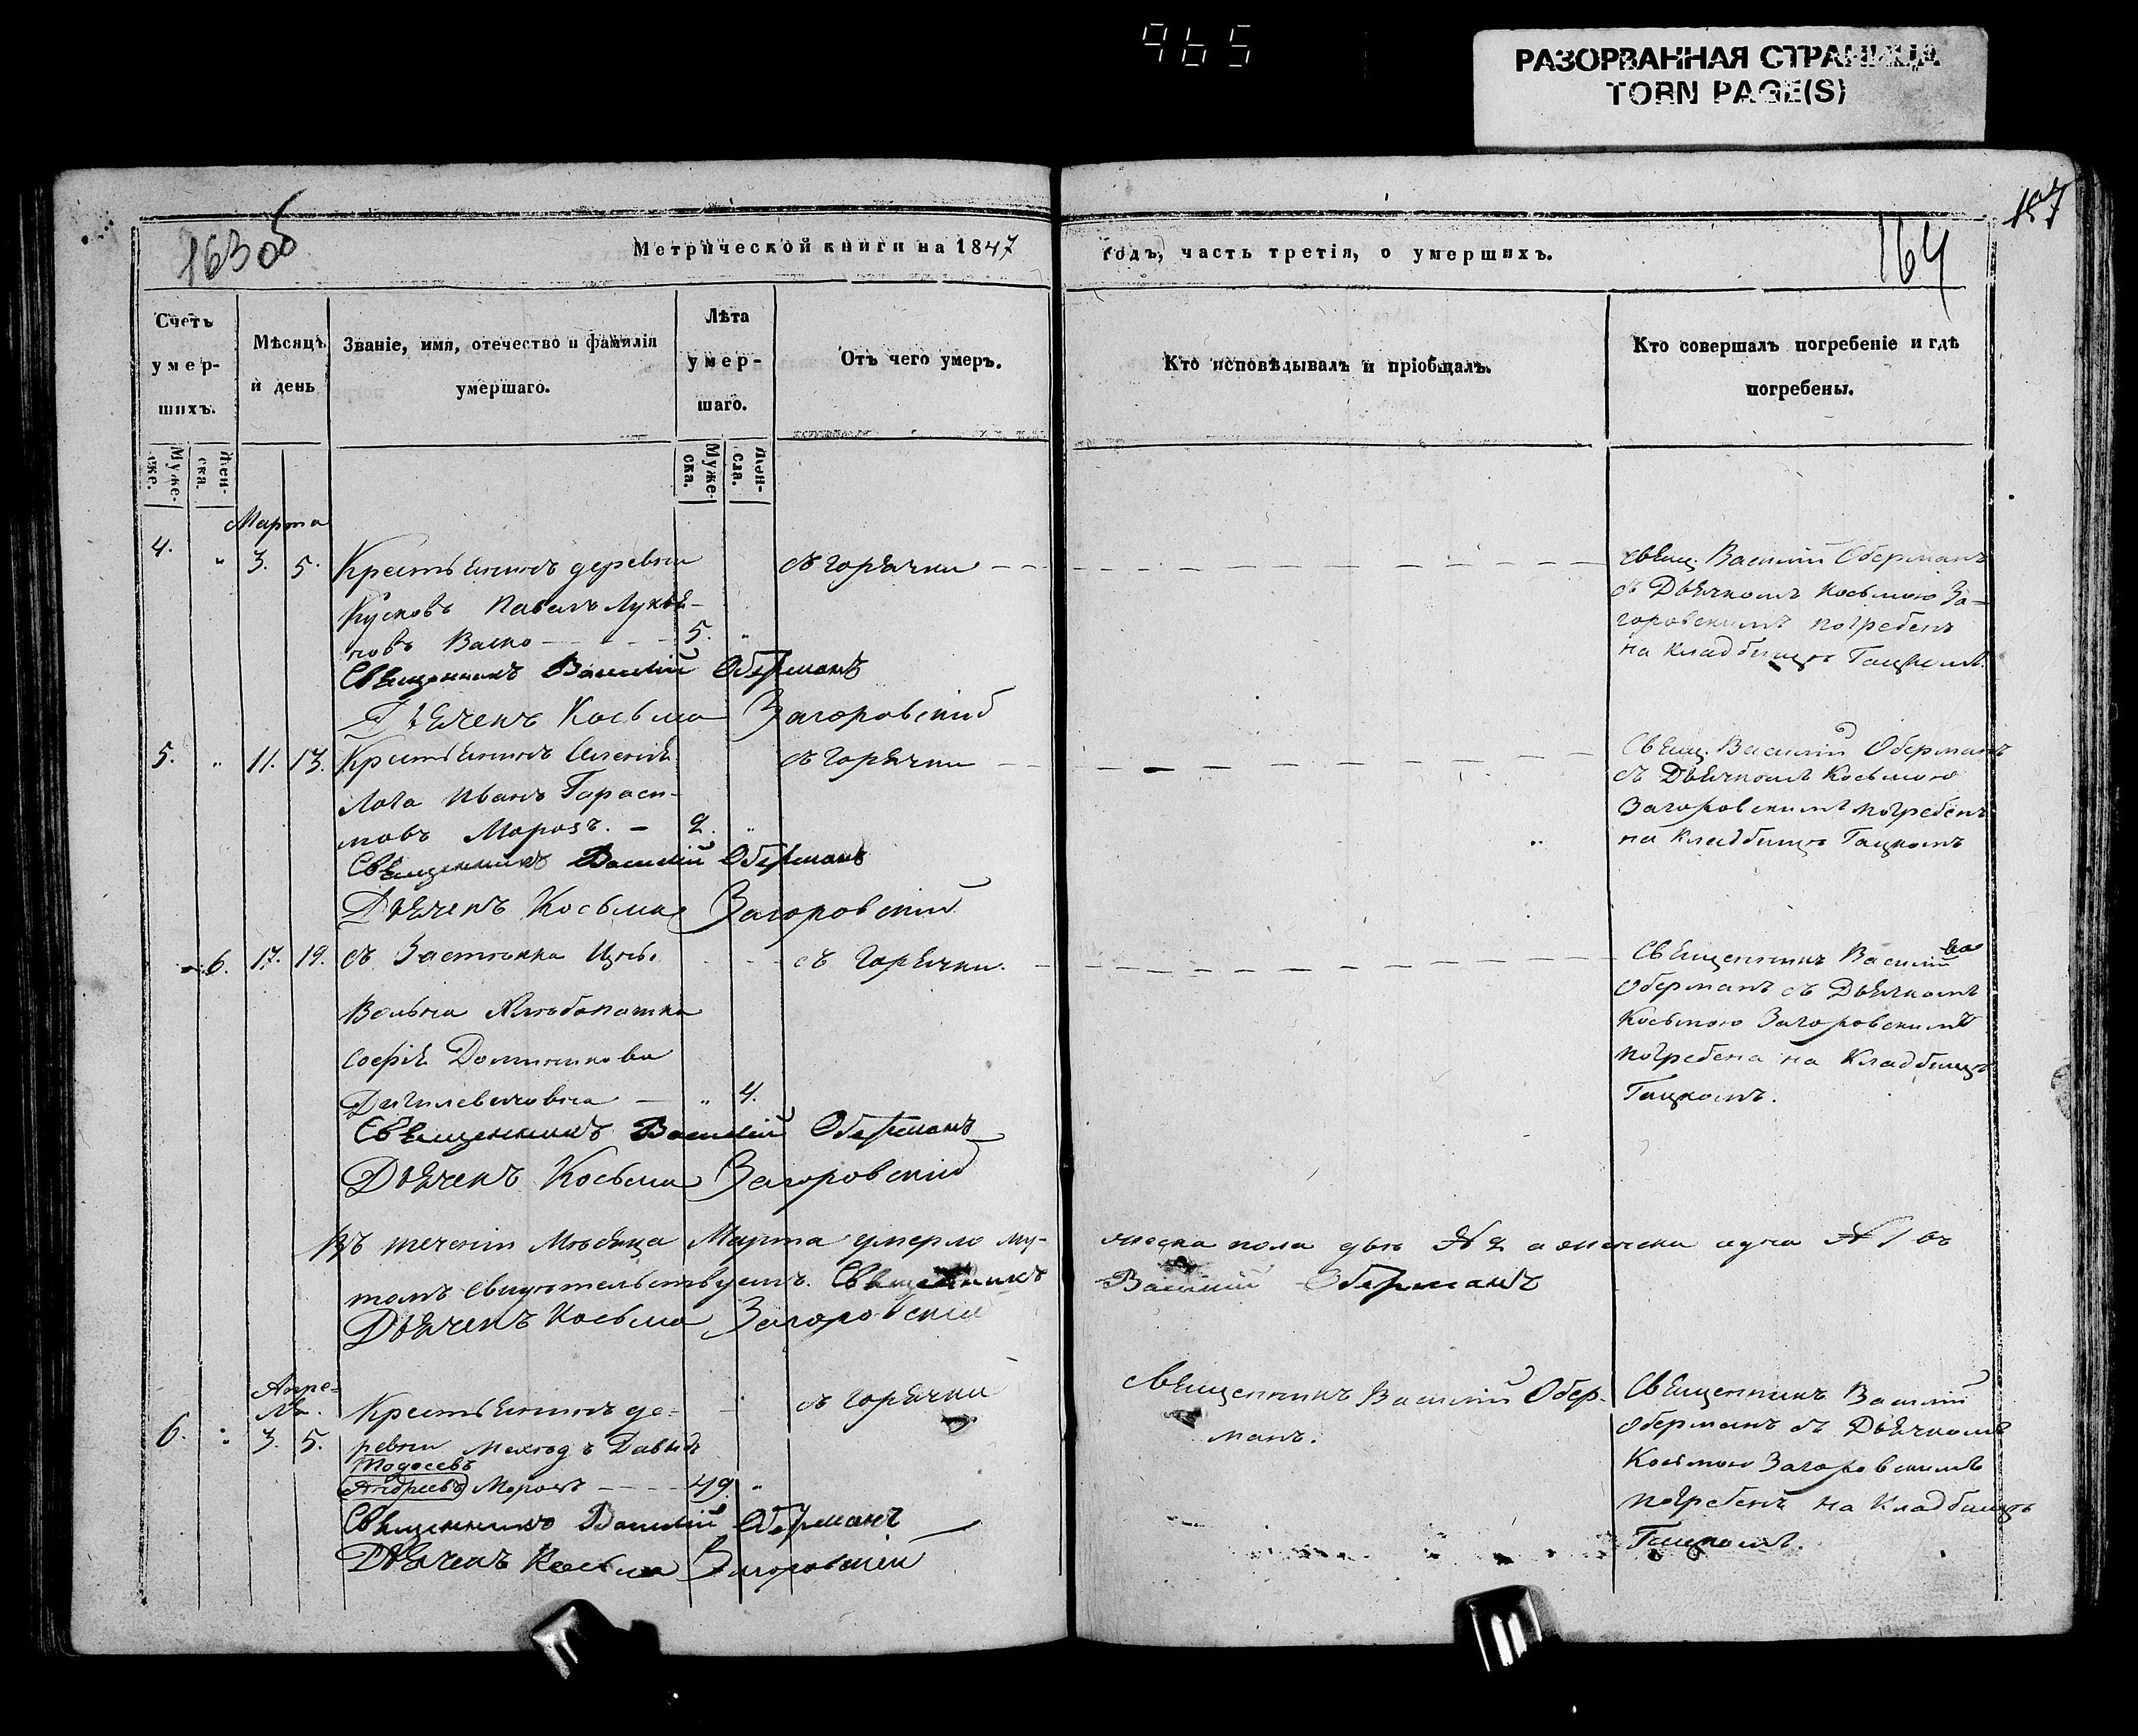 965
РАЗОРВАННАЯ СТРАНИЦА
TORN PAGE(S)
163 об
164
Метрической книги на 1847
годъ, часть третія, о умершихъ.
Счетъ умер-шихъ.
Мѣсяцъ и день
Званіе, имя, отечество и фамилія умершаго.
Лѣта умер-шаго.
Отъ чего умеръ.
Кто исповѣдывалъ и пріобщалъ.
Кто совершалъ погребеніе и гдѣ погребены.
Муже-
Жен-ска.
Муже-ска.
Жен-
Марта
4. " 3. 5. Крестьянинъ деревни
съ горячки
Кусковъ Павелъ Лукья-
новъ Васко 5. "
Священникъ Василій Оберманъ
Дьячекъ Косьма Загоровскій
свящ. Василій Оберманъ
съ Дьячкомъ Косьмою За-
горовскимъ погребенъ
на кладбищѣ Гацкомъ
5. " 11. 13. Крестьянинъ
съ горячки
Иванъ Гараси-
мовъ Морозъ. 2. "
Священникъ Василій Оберманъ
Дьячекъ Косьма Загоровскій
Свящ. Василій Оберманъ
съ Дьячкомъ Косьмою
Загоровскимъ погребенъ
на Кладбищѣ Гацкомъ
6. 17. 19. съ Застѣнка
съ Горячки.
Софія Доминикова
" 4.
Священникъ Василій Оберманъ
Дьячекъ Косьма Загоровскій
Священникъ Василій
Оберманъ съ Дьячкомъ
Косьмою Загоровскимъ
погребена на Кладбищѣ
Гацкомъ.
Въ теченіи Мѣсяца Марта умерло му-
жеска пола два № 2 а женска одна № 1 въ
томъ свидѣтельствуемъ. Священникъ
Василій Оберманъ
Дьячекъ Косьма Загоровскій
Апре-
ля.
6. " 3. 5. Крестьянинъ де-
съ горячки
ревни Давыдъ
Тодосевъ
Андреевъ Морозъ 49. "
Священникъ Василій Оберманъ
Дьячекъ Косьма Загоровскій
Священникъ Василій Обер-
манъ.
Священникъ Василій
Оберманъ съ Дьячкомъ
Косьмою Загоровскимъ
погребенъ на Кладбищѣ
Гацкомъ.